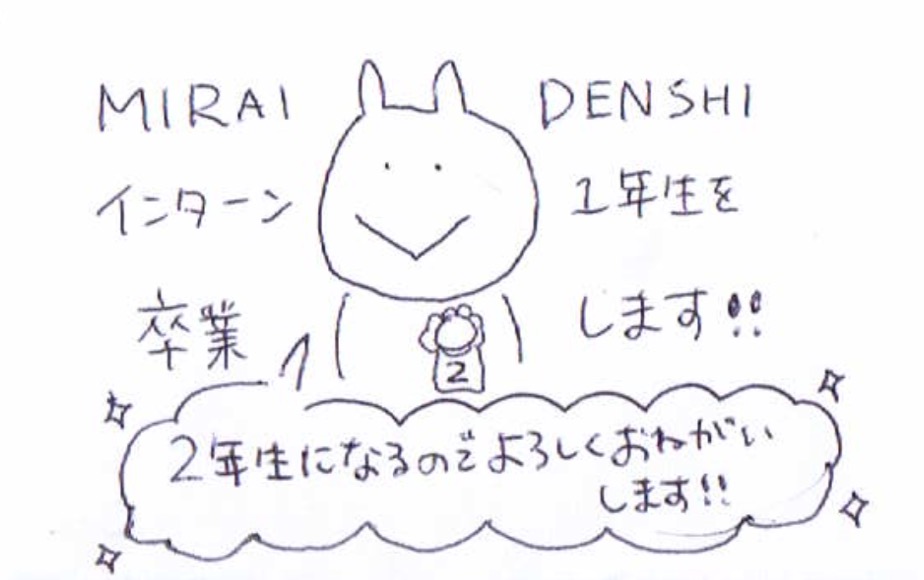 MIRAI DENSHI
インターン 1年生を
卒業 します!!
2
2年生になるのでよろしくおねがい
します!!